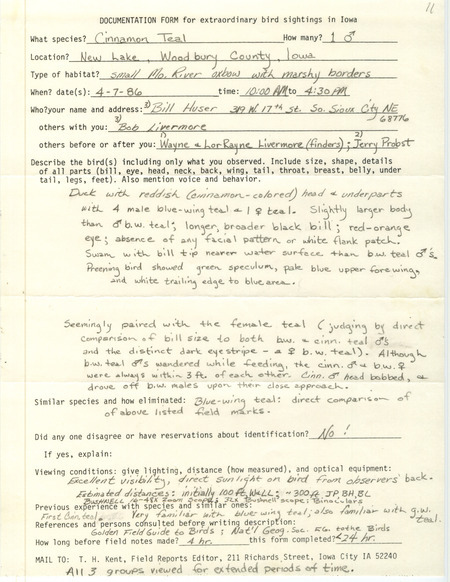 11
DOCUMENTATION FORM for extraordinary bird sightings in Iowa
What species? Cinnamon Teal How many? 1 ♂
Location? New Lake, Woodbury County, Iowa
Type of habitat? small Mo. River oxbow with marshy borders
When? date(s): 4-7-86 time: 10:00 AM to 4:30 PM
Who? your name and address: 3) Bill Huser 319 W. 17th St. So. Sioux City NE
68776
others with you: 3) Bob Livermore
others before or after you: 1) Wayne & LorRayne Livermore (finders); 2) Jerry Probst
Describe the bird(s) including only what you observed. Include size, shape, details
of all parts (bill, eye, head, neck, back, wing, tail, throat, breast, belly, under
tail, legs, feet). Also mention voice and behavior.
Duck with reddish (cinnamon-colored) head & underparts
with 4 male blue-wing teal & 1 ♀ teal. Slightly larger body
than ♂ b.w. teal; longer, broader black bill; red-orange
eye; absence of any facial pattern or white flank patch.
Swam with bill tip nearer water surface than b.w. teal ♂'s.
Preening bird showed green speculum, pale blue upper forewing,
and white trailing edge to blue area.
Seemingly paired with the female teal (judging by direct
comparison of bill size to both b.w. & cinn. teal ♂'s
and the distinct dark eyestripe - a ♀ b.w. teal). Although
b.w. teal ♂'s wandered while feeding, the cinn. ♂ & b.w. ♀
were always within 3 ft. of each other. Cinn. ♂ head bobbed, &
drove off b.w. males upon their close approach.
Similar species and how eliminated: Blue-wing teal: direct comparison of
of above listed field marks.
Did any one disagree or have reservations about identification? No!
If yes, explain:
Viewing conditions: give lighting, distance (how measured), and optical equipment:
Excellent visibility, direct sunlight on bird from observers' back.
Estimated distances: initially 100 ft. W&LL; ~300 ft JP, BH, BL
BUSHNELL Zoom Scope; 32x Bushnell scope; Binoculars
Previous experience with species and similar ones:
First Cin. teal. Very familiar with blue-wing teal; also familiar with g.w. teal.
References and persons consulted before writing description:
Golden Field Guide to Birds; Nat'l Geog. Soc. F.G. to the Birds
How long before field notes made? 4 hr. this form completed? <24 hr.
MAIL TO: T. H. Kent, Field Reports Editor, 211 Richards Street, Iowa City IA 52240
All 3 groups viewed for extended periods of time.